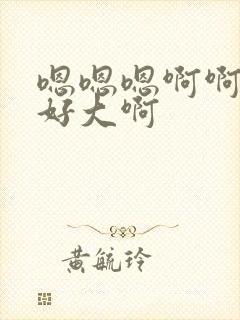 嗯嗯嗯啊啊
好大啊
黄毓玲